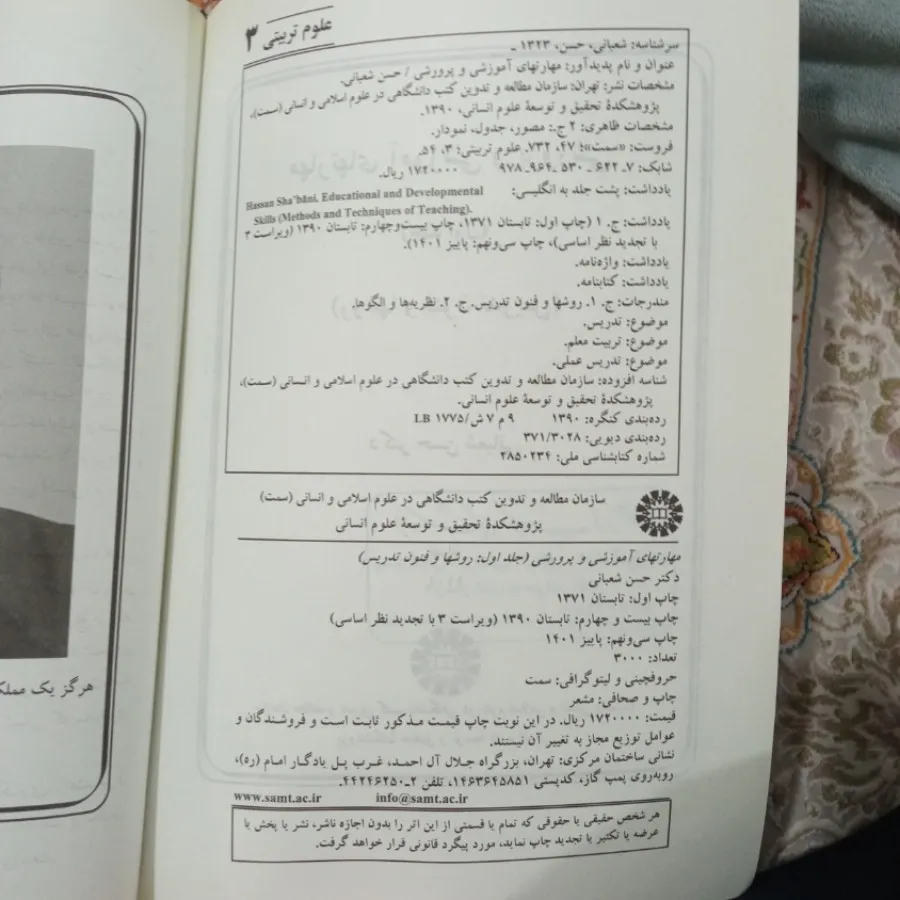 علوم تربیتی ۳
سرشناسه: شعبانی، حسن، ۱۳۲۳ ـ
عنوان و نام پدیدآور: مهارتهای آموزشی و پرورشی / حسن شعبانی.
مشخصات نشر: تهران: سازمان مطالعه و تدوین کتب دانشگاهی در علوم اسلامی و انسانی (سمت)،
پژوهشکدهٔ تحقیق و توسعهٔ علوم انسانی، ۱۳۹۰.
مشخصات ظاهری: ۲ ج.: مصور، جدول، نمودار.
فروست: «سمت»؛ ۴۷، ۷۳۲. علوم تربیتی: ۳، ۵۴.
شابک: ۷ـ ۶۲۲ ـ ۵۳۰ ـ ۹۶۴ـ ۹۷۸ ۱۷۲۰۰۰۰ ریال.
یادداشت: پشت جلد به انگلیسی: Hassan Sha'bāni. Educational and Developmental
Skills (Methods and Techniques of Teaching).
یادداشت: ج. ۱ (چاپ اول: تابستان ۱۳۷۱، چاپ بیست‌وچهارم: تابستان ۱۳۹۰ (ویراست ۳
با تجدید نظر اساسی)، چاپ سی‌ونهم: پاییز ۱۴۰۱).
یادداشت: واژه‌نامه.
یادداشت: کتابنامه.
مندرجات: ج. ۱. روشها و فنون تدریس. ج. ۲. نظریه‌ها و الگوها.
موضوع: تدریس.
موضوع: تربیت معلم.
موضوع: تدریس عملی.
شناسه افزوده: سازمان مطالعه و تدوین کتب دانشگاهی در علوم اسلامی و انسانی (سمت)،
پژوهشکدهٔ تحقیق و توسعهٔ علوم انسانی.
رده‌بندی کنگره: ۱۳۹۰ ۹ م ۷ ش/۱۷۷۵ LB
رده‌بندی دیویی: ۳۷۱/۳۰۲۸
شماره کتابشناسی ملی: ۲۸۵۰۲۳۴
سازمان مطالعه و تدوین کتب دانشگاهی در علوم اسلامی و انسانی (سمت)
پژوهشکدهٔ تحقیق و توسعهٔ علوم انسانی
مهارتهای آموزشی و پرورشی (جلد اول: روشها و فنون تدریس)
دکتر حسن شعبانی
چاپ اول: تابستان ۱۳۷۱
چاپ بیست و چهارم: تابستان ۱۳۹۰ (ویراست ۳ با تجدید نظر اساسی)
چاپ سی‌ونهم: پاییز ۱۴۰۱
تعداد: ۳۰۰۰
حروفچینی و لیتوگرافی: سمت
چاپ و صحافی: مشعر
قیمت: ۱۷۲۰۰۰۰ ریال. در این نوبت چاپ قیمت مذکور ثابت است و فروشندگان و
عوامل توزیع مجاز به تغییر آن نیستند.
نشانی ساختمان مرکزی: تهران، بزرگراه جلال آل احمد، غرب پل یادگار امام (ره)،
روبه‌روی پمپ گاز، کدپستی ۱۴۶۳۶۴۵۸۵۱، تلفن ۲ـ۴۴۲۴۶۲۵۰.
www.samt.ac.ir info@samt.ac.ir
هر شخص حقیقی یا حقوقی که تمام یا قسمتی از این اثر را بدون اجازه ناشر، نشر یا پخش یا
عرضه یا تکثیر یا تجدید چاپ نماید، مورد پیگرد قانونی قرار خواهد گرفت.
هرگز یک